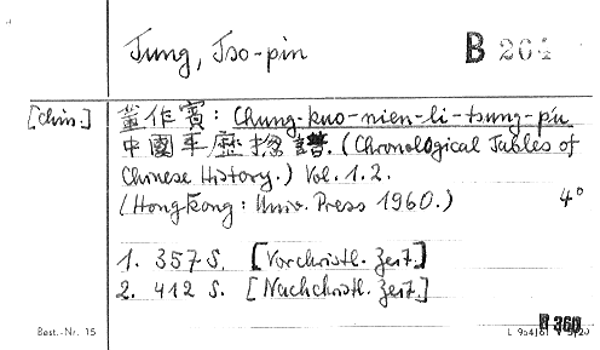 Tung, Tso-pin
B 204
[chin.]
董作賓: Chung-kuo-nien-li-tsung-p'u
中國年歷總譜. (Chronological Tables of
Chinese History.) Vol. 1.2.
(Hongkong: Univ. Press 1960.) 4°
1. 357 S. [Vorchristl. Zeit.]
2. 412 S. [Nachchristl. Zeit.]
B 360
Best.-Nr. 15